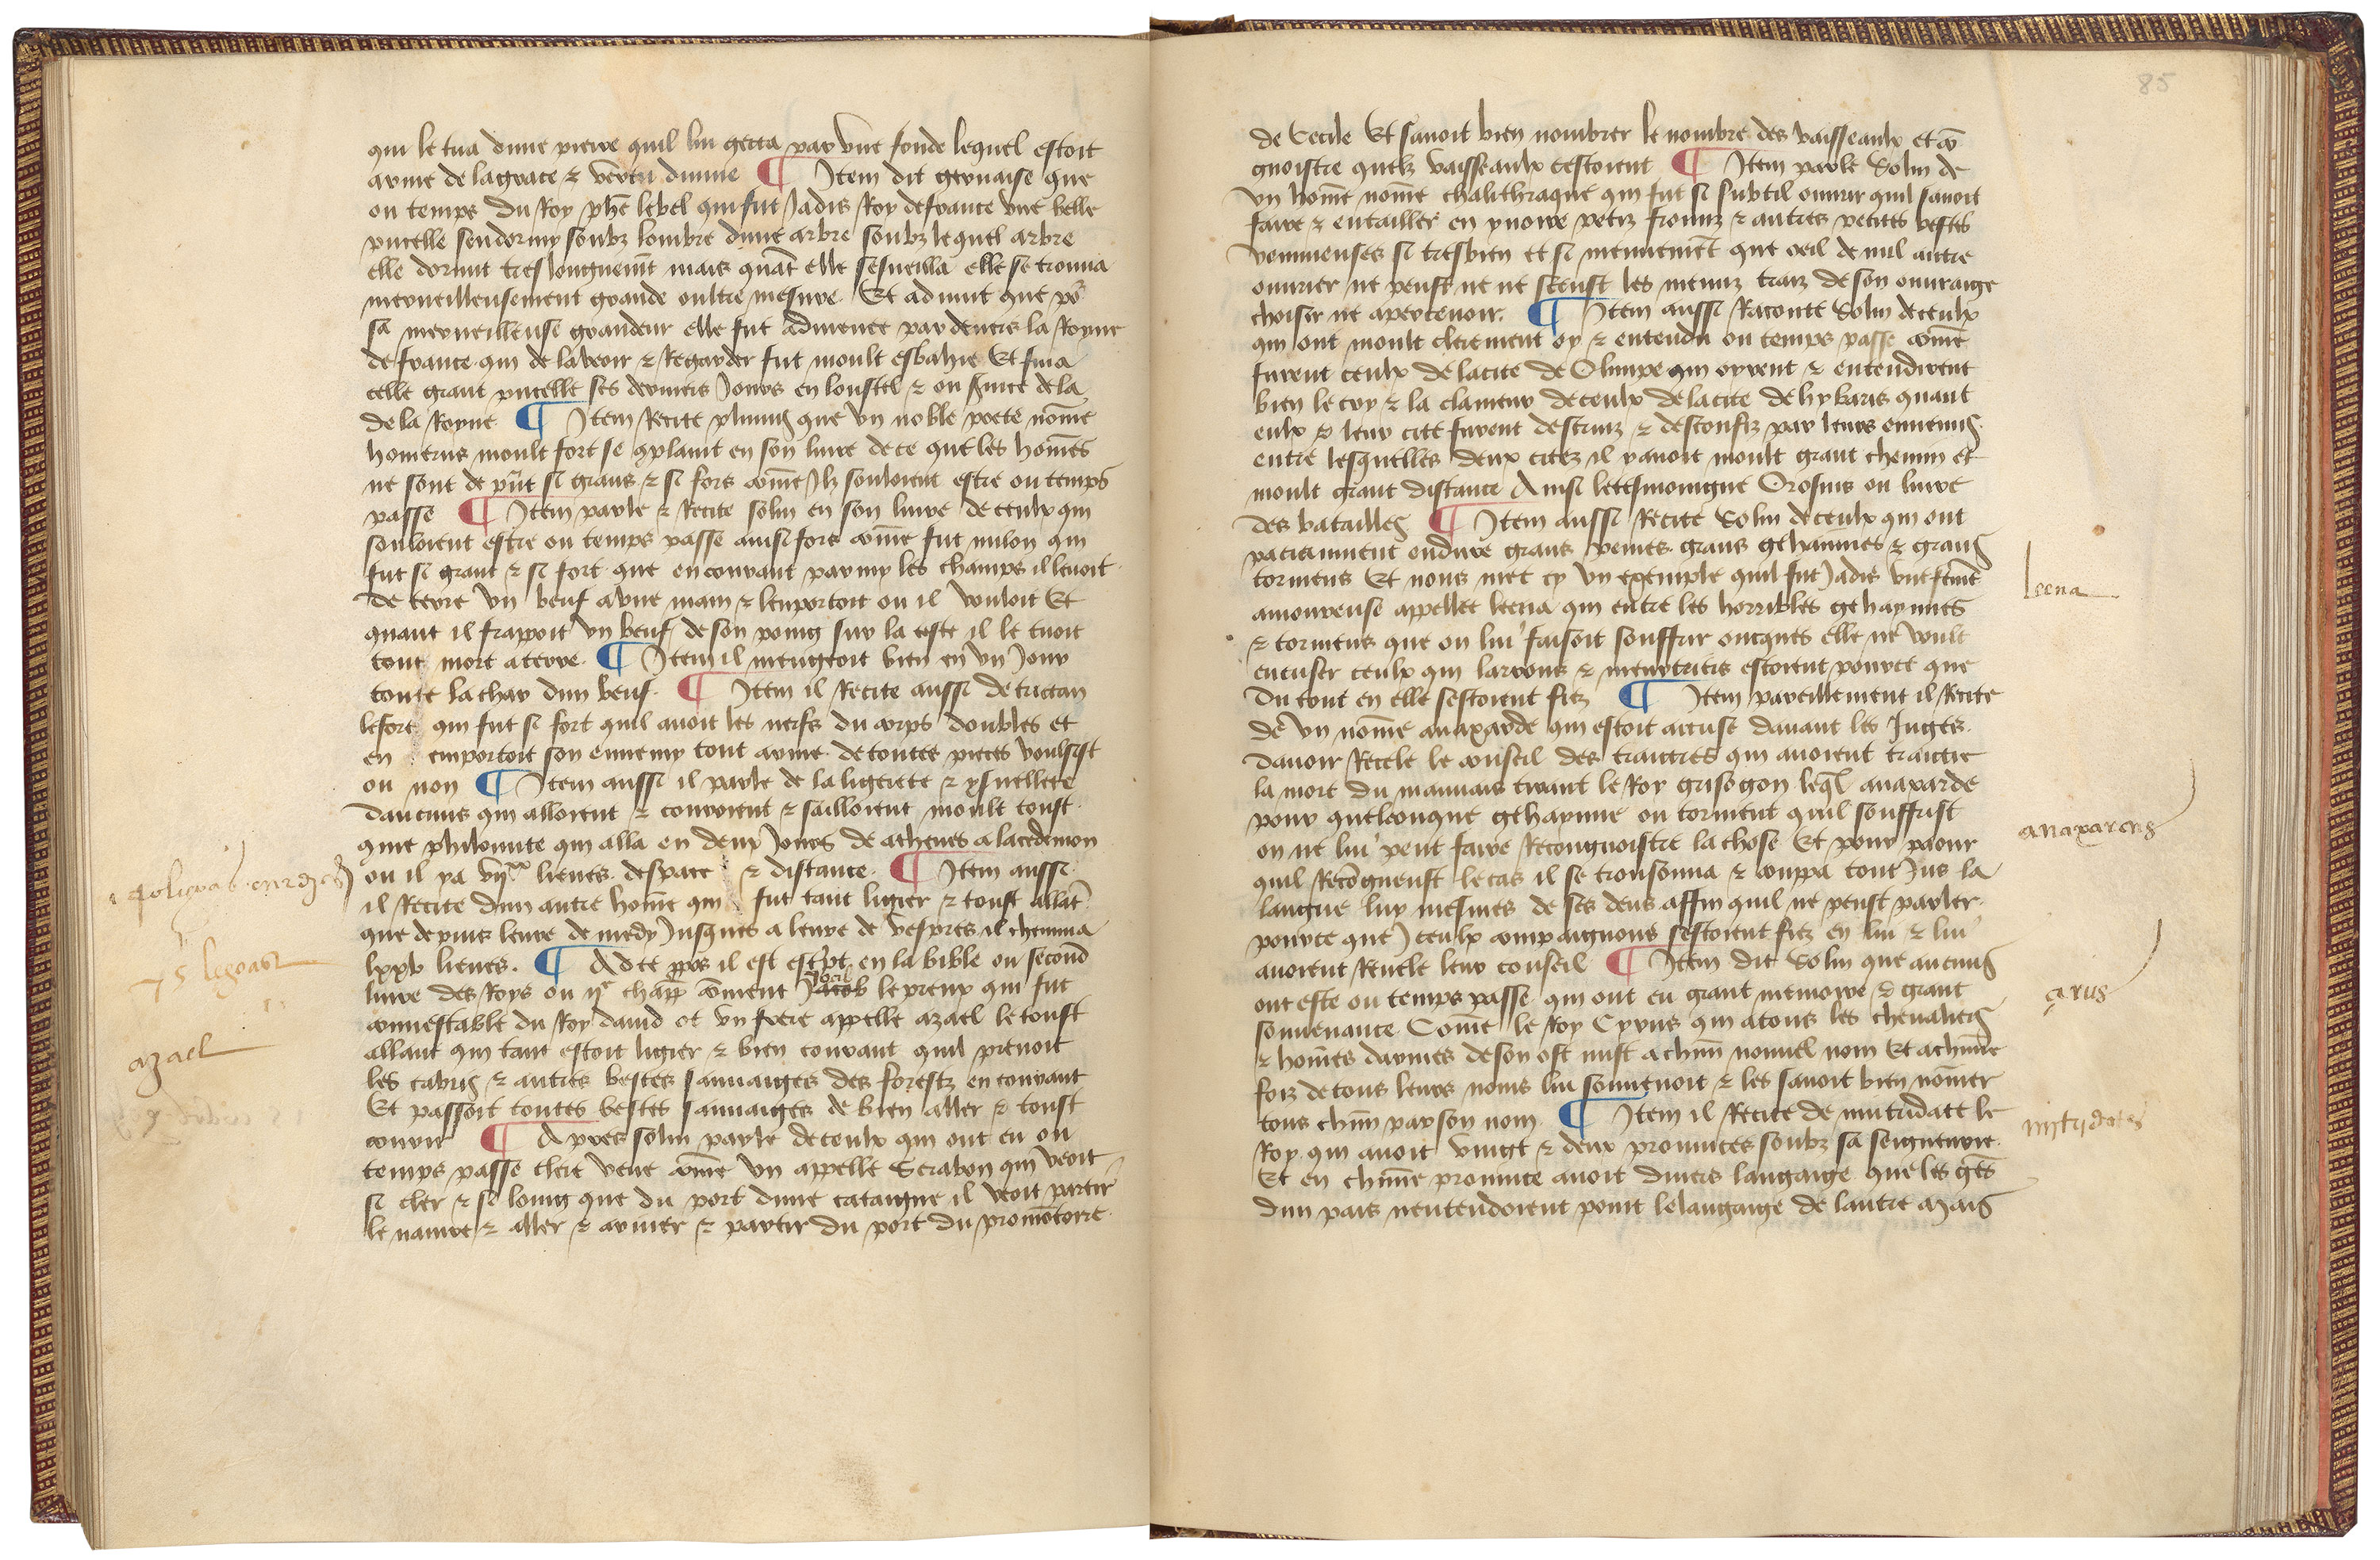 qui le tua dune pierre quil lui getta par vne fonde lequel estoit
arme de la grace & vertu diuine ¶ Item dit geruaise que
ou temps du Roy phē lebel qui fut Jadis Roy de france vne belle
pucelle sendormy soubz lombre dune arbre soubz lequel arbre
elle dormit tres longuemēt mais quāt elle sesueilla elle se trouua
merueilleusement grande oultre mesure Et aduint que po
sa merueilleuse grandeur elle fut admenee par deuers la Royne
de france qui de la veoir & Regarder fut moult esbahie Et fina
celle grant pucelle ses derniers Jours en lostel & ou seruice de la
de la Royne ¶ Item Recite plinius que vn noble poete nōme
homerus moult fort se cplaint en son liure de ce que les hōmes
ne sont de pñt si grans & si fors cōme Ilz souloient estre ou temps
passe ¶ Item parle & Recite solin en son liure de ceulx qui
souloient estre ou temps passe ainsi fors cōme fut milon qui
fut si grant & si fort que en courant parmy les champs il leuoit
de terre vn beuf a vne main & lenportoit ou il vouloit Et
quant il frappoit vn beuf de son poing sur la teste il le tuoit
tout mort a terre ¶ Item il mengeoit bien en vn Jour
toute la char dun beuf ¶ Item il Recite aussi de trictan
le fort qui fut si fort quil auoit les nerfs du corps doubles et
en emportoit son ennemy tout arme de toutes pieces voulsist
ou non ¶ Item aussi il parle de la ligierete & ysnellete
daucuns qui alloient & couroient & sailloient moult tost
que philonnte qui alla en deux Jours de athenes a lacedemon
ou il ya lieues despace & distance ¶ Item aussi
il Recite dun autre hōme qui fut tant ligier & tost allāt
que depuis leure de medy Jusques a leure de vespres il chemina
lxxv lieues ¶ A ce ppos il est escript en la bible ou second
liure des Roys ou ije chapp cōment Joab le preux qui fut
connestable du Roy dauid ot vn frere appelle azael le tost
allant qui tant estoit ligier & bien courant quil prenoit
les cabris & autres bestes sauuaiges des forestz en courant
Et passoit toutes bestes sauuaiges de bien aller & tost
courir ¶ Apres solin parle de ceulx qui ont eu ou
temps passe clere veue cōme vn appelle Strabon qui veoit
si cler & si loing que du port dune cataigne il veoit partir
le nauire & aller & armer & partir du port du promōtoire
azael
85
de Cecile Et sauoit bien nombrer le nombre des vaisseaulx et cō
gnoistre quelz vaisseaulx cestoient ¶ Item parle Solin de
vn hōme nōme chalithraque qui fut si subtil ouurier quil sauoit
faire & entailler en yuoire petiz fromiz & autres petites bestes
venimeuses si tresbien et si menuemēt que oeil de nul autre
ouurier ne peust ne ne sceust les menuz traiz de son ouuraige
choisir ne apercenoir ¶ Item aussi Raconte Solin de ceulx
qui ont moult clerement oy & entendu ou temps passe cōme
furent ceulx de la cite de Olimpe qui oyrent & entendirent
bien le cry & la clameur de ceulx de la cite de hybaris quant
eulx & leur cite furent destruiz & desconfiz par leurs ennemis
entre lesquelles deux citez il y auoit moult grant chemin et
moult grant distance Ainsi le tesmoingne Orosius ou liure
des batailles ¶ Item aussi Recite Solin de ceulx qui ont
paciamment endure grans peines grans gehainnes & grans
tormens Et nous met cy vn exemple quil fut Jadis vne fēme
amoureuse appellee leena qui entre les horribles gehaynnes
& tormens que on lui faisoit souffrir oncques elle ne voult
encuser ceulx qui larrons & meurtriers estoient pource que
du tout en elle sestoient fiez ¶ Item pareillement il Recite
de vn nōme anaxarde qui estoit accuse dauant les Juges
dauoir Recele le conseil des traictres qui auoient traictie
la mort du mauuais tirant le Roy grisogon leql anaxarde
pour quelconque gehaynne ou torment quil souffrist
on ne lui peut faire Recongnoistre la chose Et pour paour
quil Recōgneust le cas il se tronsonna & coupa tout Jus la
langue luy mesmes de ses dens affin quil ne peust parler
pource que Jceulx compaignons sestoient fiez en lui & lui
auoient Reuele leur conseil ¶ Item dit Solin que aucuns
ont este ou temps passe qui ont eu grant memoire & grant
souuenance Cōme le Roy Cyrus qui a tous les cheualiers
& hōmes darmes de son ost mist a chun nouuel nom Et a chune
foiz de tous leurs noms lui souuenoit & les sauoit bien nōmer
tous chun par son nom ¶ Item il Recite de mitridate le
Roy qui auoit vingt & deux prouinces soubz sa seigneurie
Et en chune prouince auoit diuers langaige que les gēs
dun pais nentendoient point le langaige de lautre Mais
leena
anaxarcus
cirus
mitridates